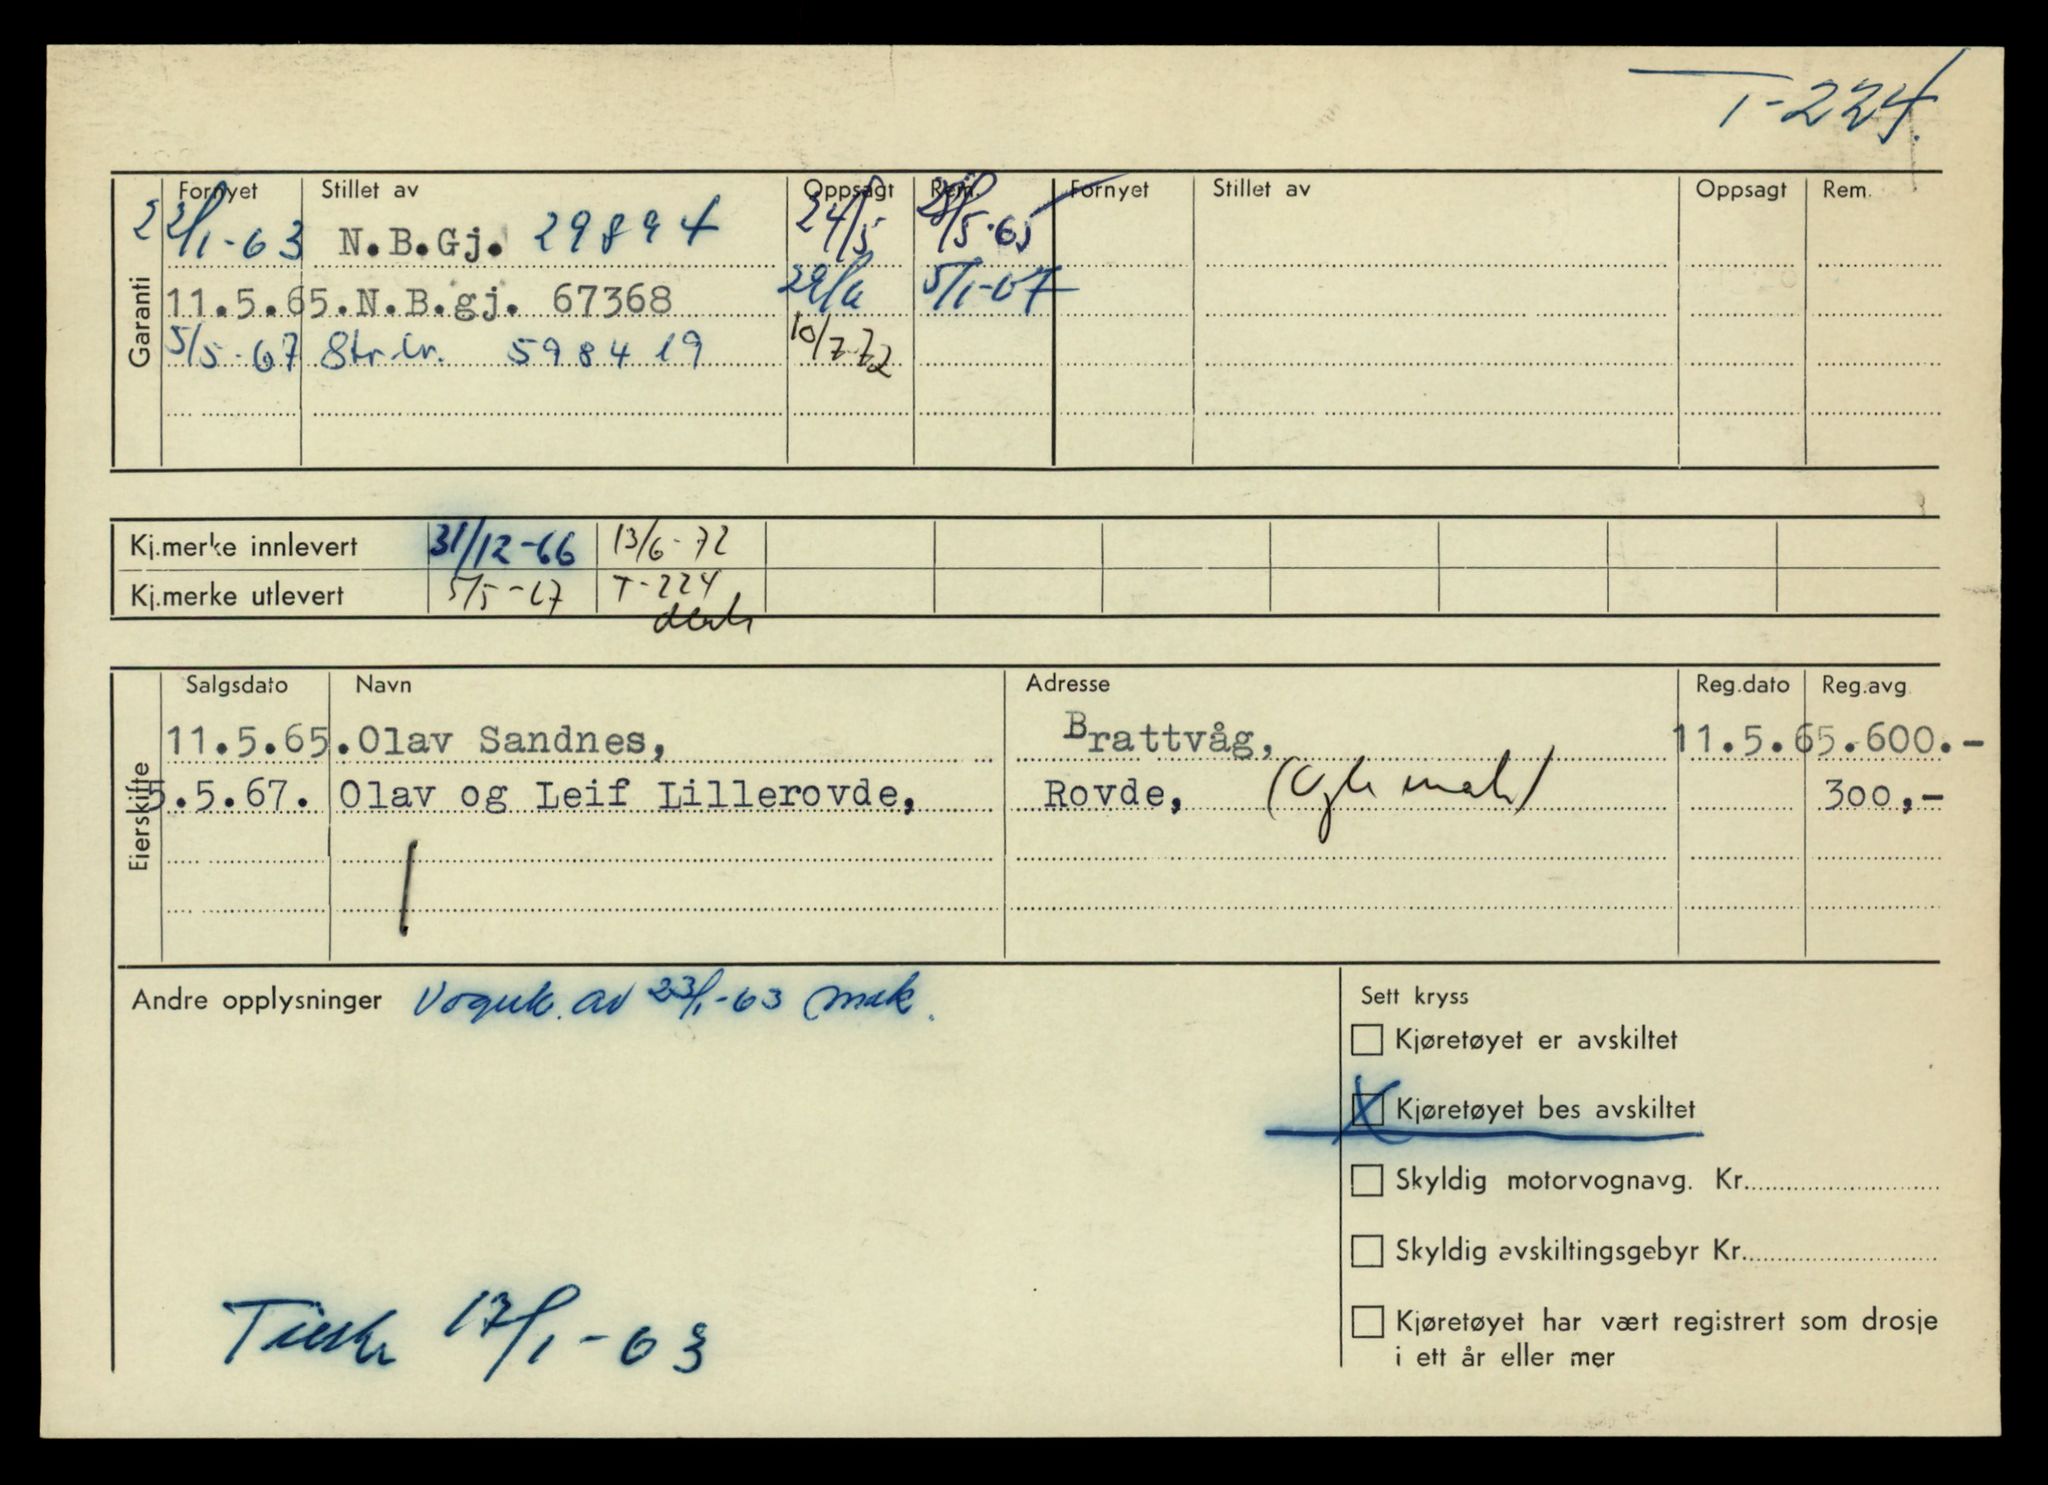 T-224.
Fornyet Stillet av Oppsagt Rem. Fornyet Stillet av Oppsagt Rem.
Garanti
22/1-63 N.B.Gj. 29894 24/5 28/5-65
11.5.65. N.B.gj. 67368 5/1-67
5/5-67 598419 10/7-72
Kj.merke innlevert 31/12-66 13/6-72
Kj.merke utlevert 5/5-67 T-224
Eierskifte
Salgsdato Navn Adresse Reg.dato Reg.avg.
11.5.65. Olav Sandnes, Brattvåg, 11.5.65. 600.-
5.5.67. Olav og Leif Lillerovde, Rovde, 300,-
Andre opplysninger Vognk. av 23/1-63 mak.
Sett kryss
Kjøretøyet er avskiltet
X Kjøretøyet bes avskiltet
Skyldig motorvognavg. Kr.
Skyldig avskiltingsgebyr Kr.
Kjøretøyet har vært registrert som drosje
i ett år eller mer
17/1-63